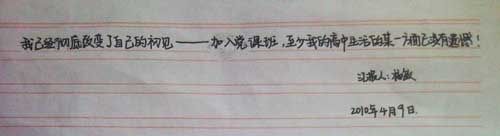 我已经彻底改变了自己的初见——加入党课班，至少我的高中生活的某一方面已没有遗憾！
汇报人：杨敏
2010年4月9日